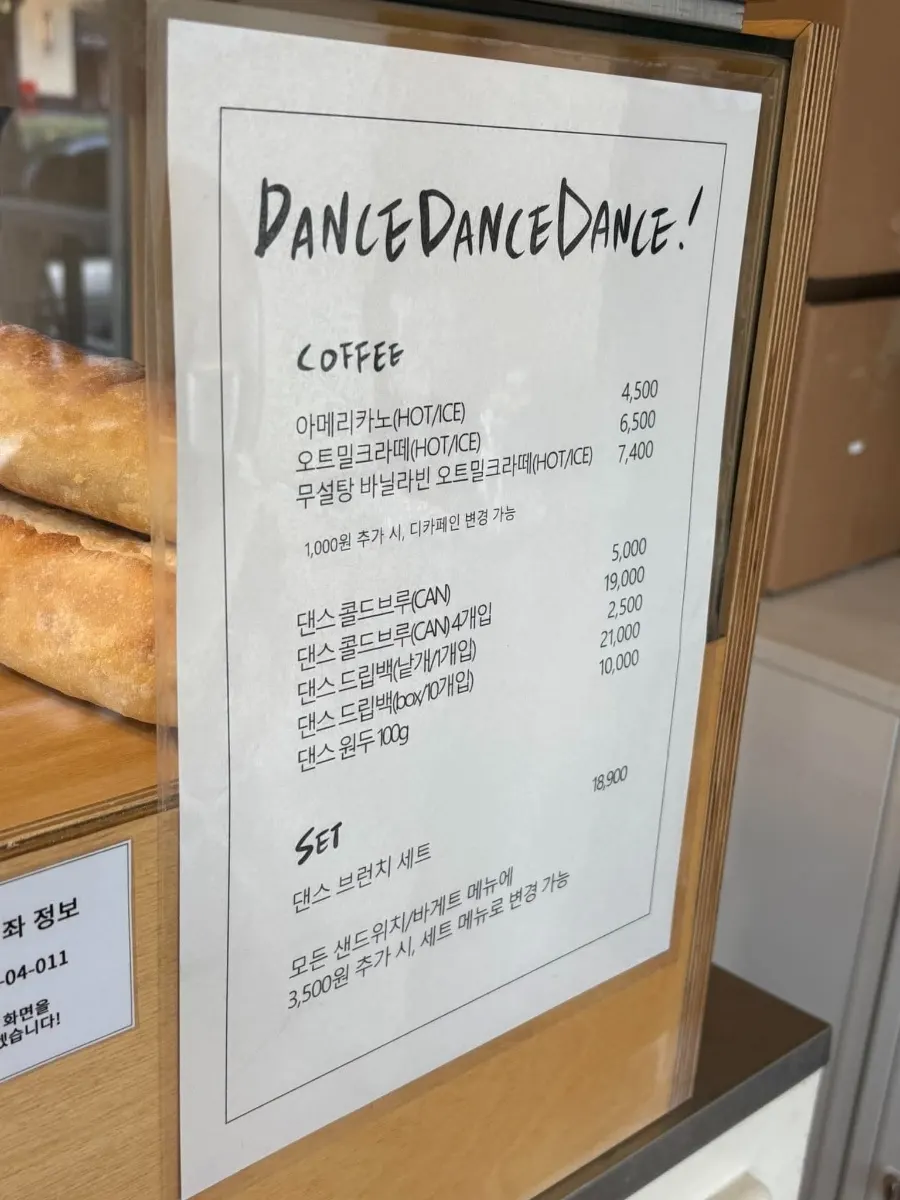 DANCEDANCEDANCE!
COFFEE
아메리카노(HOT/ICE) 4,500
오트밀크라떼(HOT/ICE) 6,500
무설탕 바닐라빈 오트밀크라떼(HOT/ICE) 7,400
1,000원 추가 시, 디카페인 변경 가능
댄스 콜드브루(CAN) 5,000
댄스 콜드브루(CAN) 4개입 19,000
댄스 드립백(낱개/1개입) 2,500
댄스 드립백(box/10개입) 21,000
댄스 원두 100g 10,000
SET
댄스 브런치 세트 18,900
모든 샌드위치/바게트 메뉴에
3,500원 추가 시, 세트 메뉴로 변경 가능
좌 정보
-04-011
화면을
겠습니다!